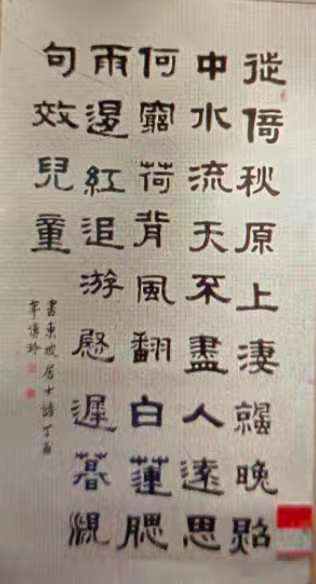 徙倚秋原上淒涼晚照
中水流天不盡人遠思
何窮荷背風翻白蓮腮
雨退紅追游慰遲暮覓
句效兒童
書東坡居士詩丁酉
年 玲